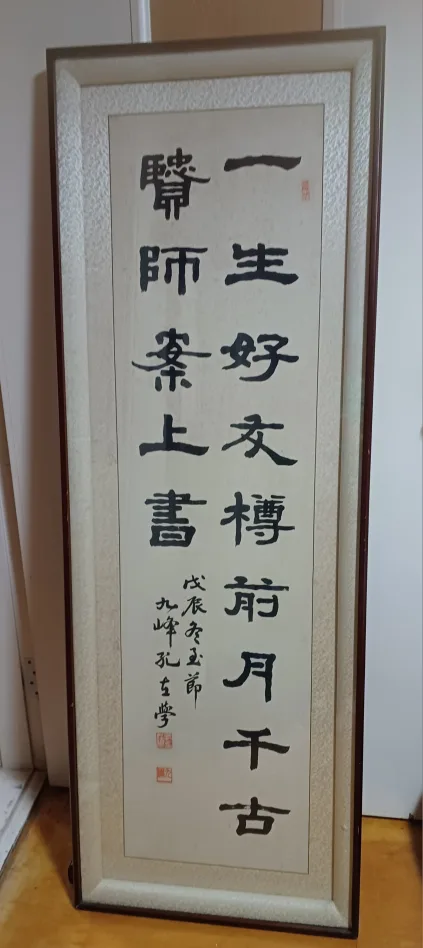 一生好友樽前月千古
贒師案上書
戊辰冬至節
九峰孔在學